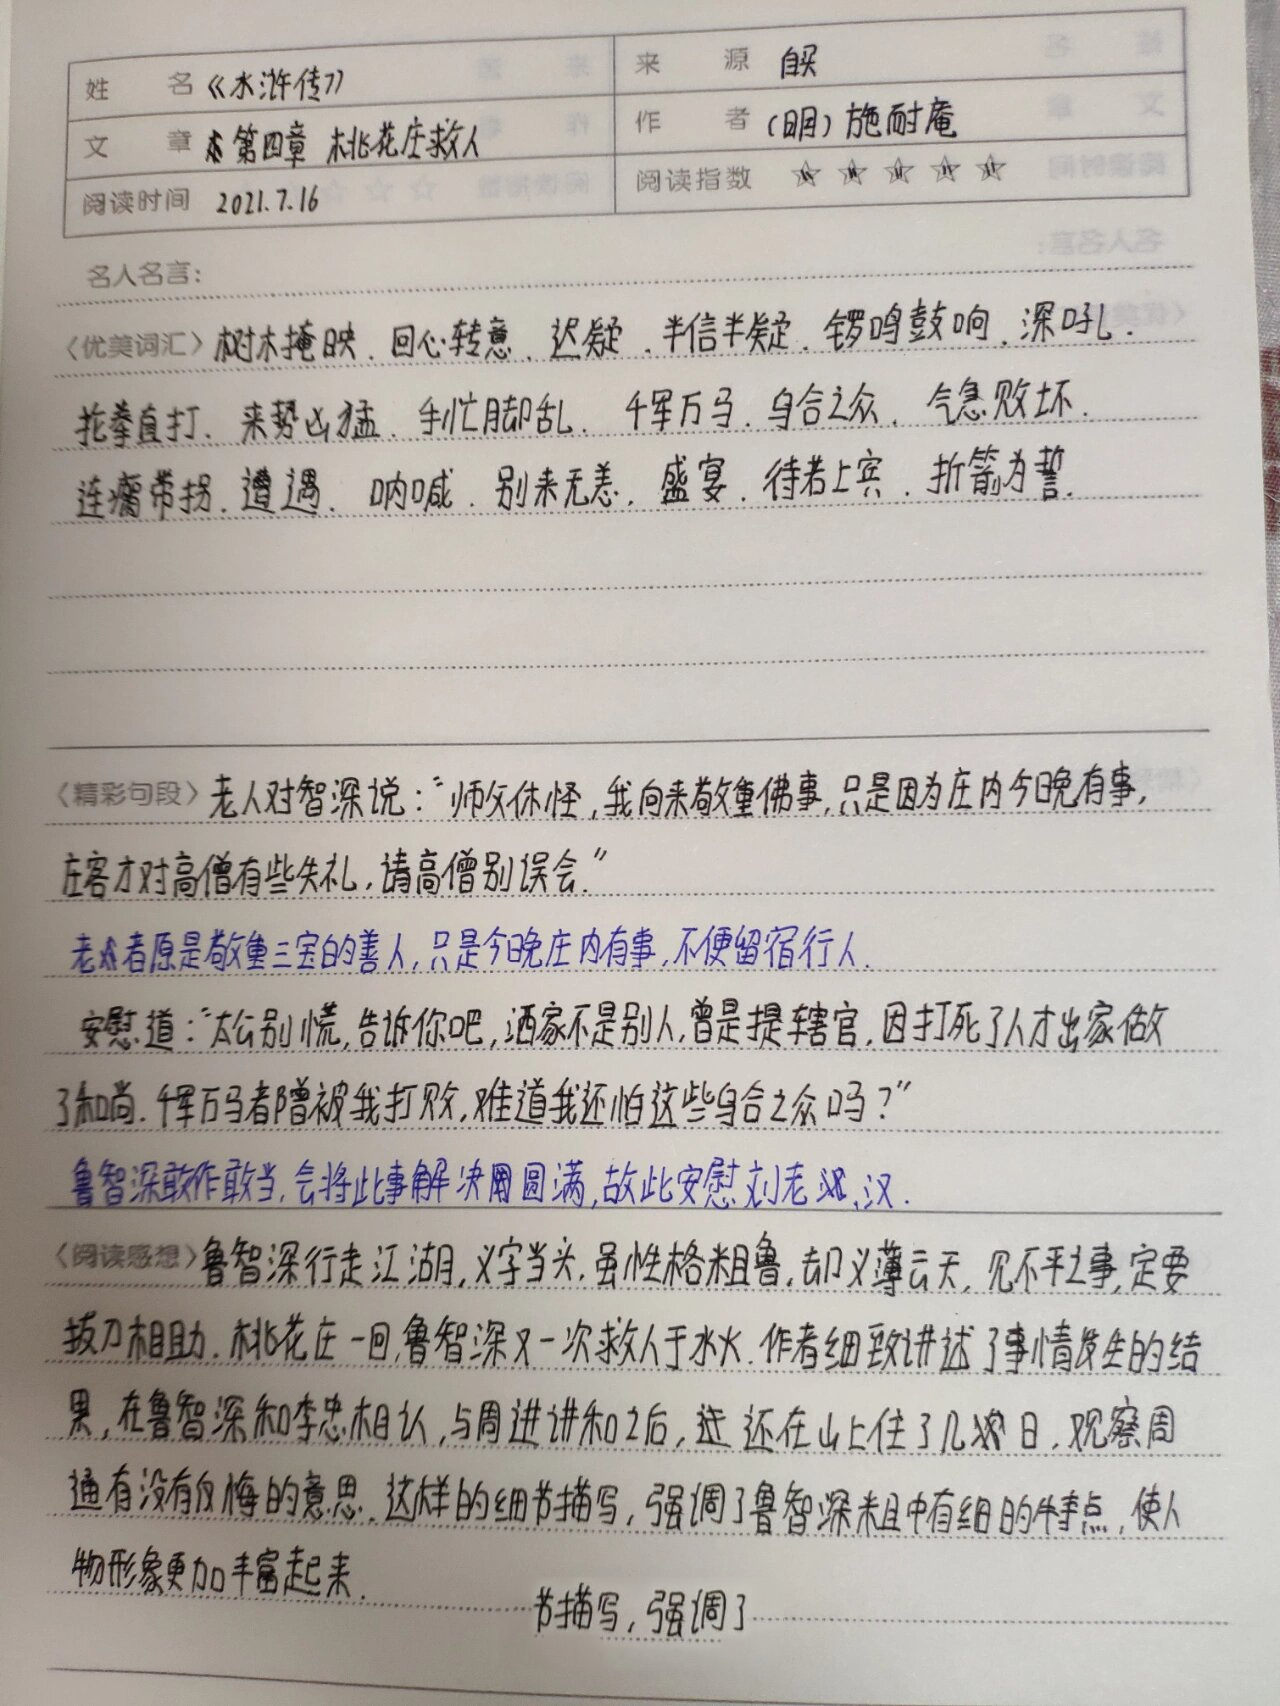 姓 名 《水浒传》 来 源 自买
文 章 第四章 桃花庄救人 作 者 (明)施耐庵
阅读时间 2021.7.16 阅读指数 ☆☆☆☆☆
名人名言:
〈优美词汇〉树木掩映、回心转意、迟疑、半信半疑、锣鸣鼓响、深吼、
抡拳直打、来势凶猛、手忙脚乱、千军万马、乌合之众、气急败坏、
连瘸带拐、遭遇、呐喊、别来无恙、盛宴、待若上宾、折箭为誓.
〈精彩句段〉老人对智深说:“师父休怪,我向来敬重佛事,只是因为庄内今晚有事,
庄客才对高僧有些失礼,请高僧别误会.”
老者原是敬重三宝的善人,只是今晚庄内有事,不便留宿行人.
安慰道:“太公别慌,告诉你吧,洒家不是别人,曾是提辖官,因打死了人才出家做
了和尚.千军万马都曾被我打败,难道我还怕这些乌合之众吗?”
鲁智深敢作敢当,会将此事解决圆满,故此安慰刘老汉.
〈阅读感想〉鲁智深行走江湖,义字当头,虽性格粗鲁,却义薄云天,见不平之事,定要
拔刀相助.桃花庄一回,鲁智深又一次救人于水火.作者细致讲述了事情发生的结
果,在鲁智深和李忠相认,与周进讲和之后,还在山上住了几日,观察周
通有没有反悔的意思.这样的细节描写,强调了鲁智深粗中有细的特点,使人
物形象更加丰富起来.
节描写,强调了